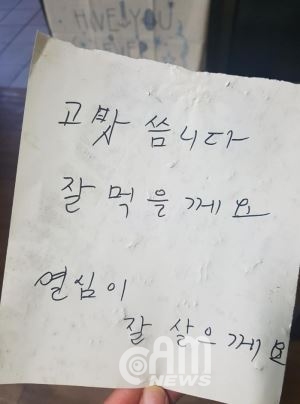 HAVE YOU
EVER
고맛 씀니다
잘 먹을 께요
열심이
잘 살으께요
CAM
NEWS